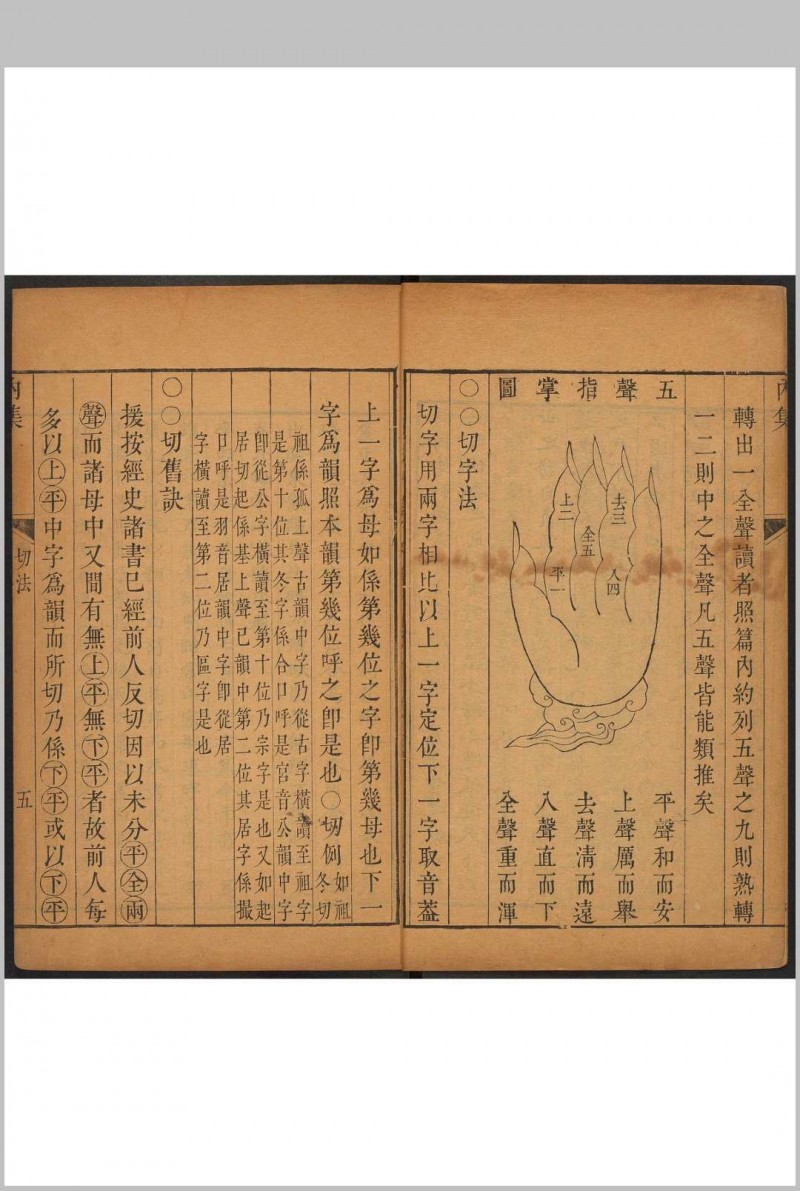 集
轉出一全聲讀者照篇內約列五聲之九則熟轉
一二則中之全聲凡五聲皆能類推矣
五聲指掌圖
平一
上二
去三
入四
全五
平聲和而安
上聲厲而舉
去聲清而遠
入聲直而下
全聲重而渾
○○切字法
切字用兩字相比以上一字定位下一字取音葢
上一字爲母如係第幾位之字卽第幾母也下一
字爲韻照本韻第幾位呼之卽是也○切例如祖冬切
祖係狐上聲古韻中字乃從古字橫讀至祖字
是第十位其冬字係合口呼是宮音公韻中字
卽從公字橫讀至第十位乃宗字是也又如起
居切起係基上聲已韻中第二位其居字係撮
口呼是羽音居韻中字卽從居
字橫讀至第二位乃區字是也
○○切舊訣
援按經史諸書已經前人反切因以未分平全兩
聲而諸母中又間有無上平無下平者故前人每
多以上平中字爲韻而所切乃係下平或以下平
集
切法
五